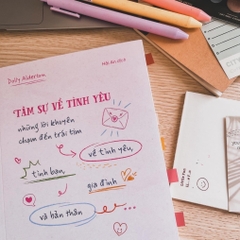 Dolly Alderton
TÂM SỰ VỀ TÌNH YÊU
những lời khuyên
chạm đến trái tim
về tình yêu,
tình bạn,
gia đình
và bản thân